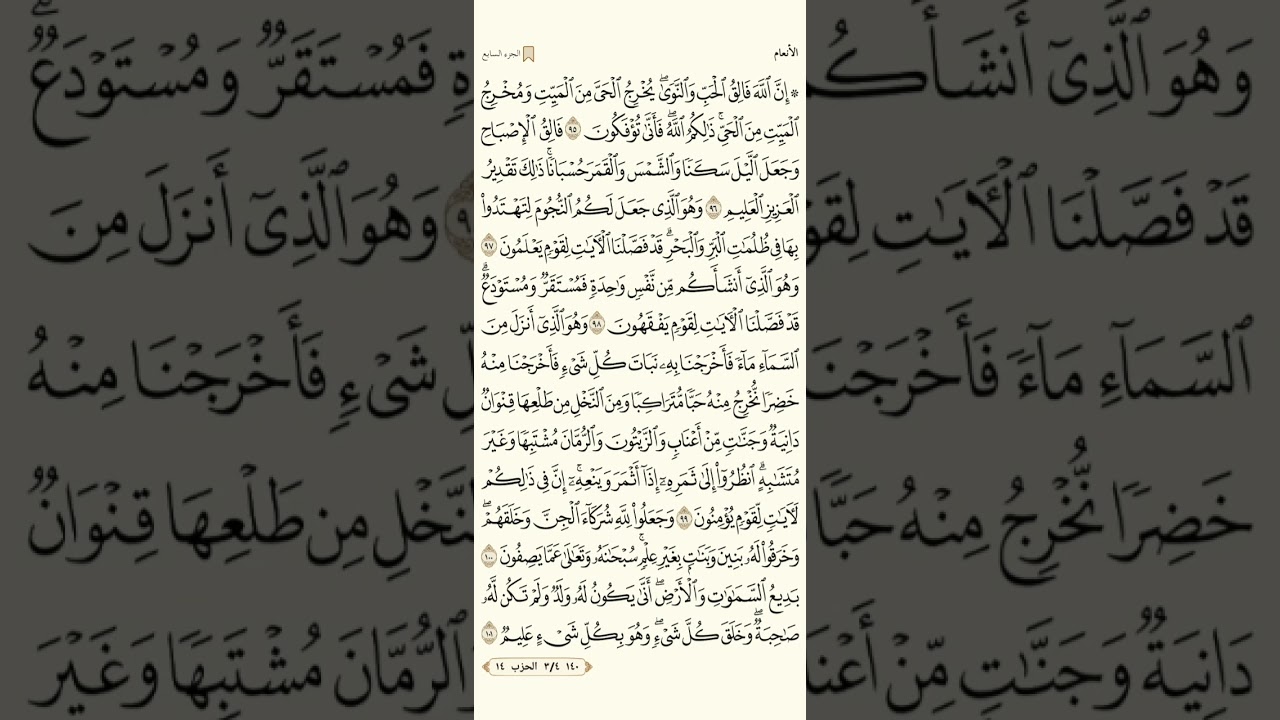 الأنعام
الجزء السابع
* إِنَّ ٱللَّهَ فَالِقُ ٱلْحَبِّ وَٱلنَّوَىٰۖ يُخْرِجُ ٱلْحَىَّ مِنَ ٱلْمَيِّتِ وَمُخْرِجُ
ٱلْمَيِّتِ مِنَ ٱلْحَىِّۚ ذَٰلِكُمُ ٱللَّهُۖ فَأَنَّىٰ تُؤْفَكُونَ ٩٥ فَالِقُ ٱلْإِصْبَاحِ
وَجَعَلَ ٱلَّيْلَ سَكَنًا وَٱلشَّمْسَ وَٱلْقَمَرَ حُسْبَانًاۚ ذَٰلِكَ تَقْدِيرُ
ٱلْعَزِيزِ ٱلْعَلِيمِ ٩٦ وَهُوَ ٱلَّذِى جَعَلَ لَكُمُ ٱلنُّجُومَ لِتَهْتَدُوا۟
بِهَا فِى ظُلُمَٰتِ ٱلْبَرِّ وَٱلْبَحْرِۗ قَدْ فَصَّلْنَا ٱلْءَايَٰتِ لِقَوْمٍ يَعْلَمُونَ ٩٧
وَهُوَ ٱلَّذِىٓ أَنشَأَكُم مِّن نَّفْسٍ وَٰحِدَةٍ فَمُسْتَقَرٌّ وَمُسْتَوْدَعٌۗ
قَدْ فَصَّلْنَا ٱلْءَايَٰتِ لِقَوْمٍ يَفْقَهُونَ ٩٨ وَهُوَ ٱلَّذِىٓ أَنزَلَ مِنَ
ٱلسَّمَآءِ مَآءً فَأَخْرَجْنَا بِهِۦ نَبَاتَ كُلِّ شَىْءٍ فَأَخْرَجْنَا مِنْهُ
خَضِرًا نُّخْرِجُ مِنْهُ حَبًّا مُّتَرَاكِبًا وَمِنَ ٱلنَّخْلِ مِن طَلْعِهَا قِنْوَانٌ
دَانِيَةٌ وَجَنَّٰتٍ مِّنْ أَعْنَابٍ وَٱلزَّيْتُونَ وَٱلرُّمَّانَ مُشْتَبِهًا وَغَيْرَ
مُتَشَٰبِهٍۗ ٱنظُرُوٓا۟ إِلَىٰ ثَمَرِهِۦٓ إِذَآ أَثْمَرَ وَيَنْعِهِۦٓۚ إِنَّ فِى ذَٰلِكُمْ
لَءَايَٰتٍ لِّقَوْمٍ يُؤْمِنُونَ ٩٩ وَجَعَلُوا۟ لِلَّهِ شُرَكَآءَ ٱلْجِنَّ وَخَلَقَهُمْۖ
وَخَرَقُوا۟ لَهُۥ بَنِينَ وَبَنَٰتٍۭ بِغَيْرِ عِلْمٍۚ سُبْحَٰنَهُۥ وَتَعَٰلَىٰ عَمَّا يَصِفُونَ ١٠٠
بَدِيعُ ٱلسَّمَٰوَٰتِ وَٱلْأَرْضِۖ أَنَّىٰ يَكُونُ لَهُۥ وَلَدٌ وَلَمْ تَكُن لَّهُۥ
صَٰحِبَةٌۖ وَخَلَقَ كُلَّ شَىْءٍۖ وَهُوَ بِكُلِّ شَىْءٍ عَلِيمٌ ١٠١
١٤٠ ٣/٤ الحزب ١٤